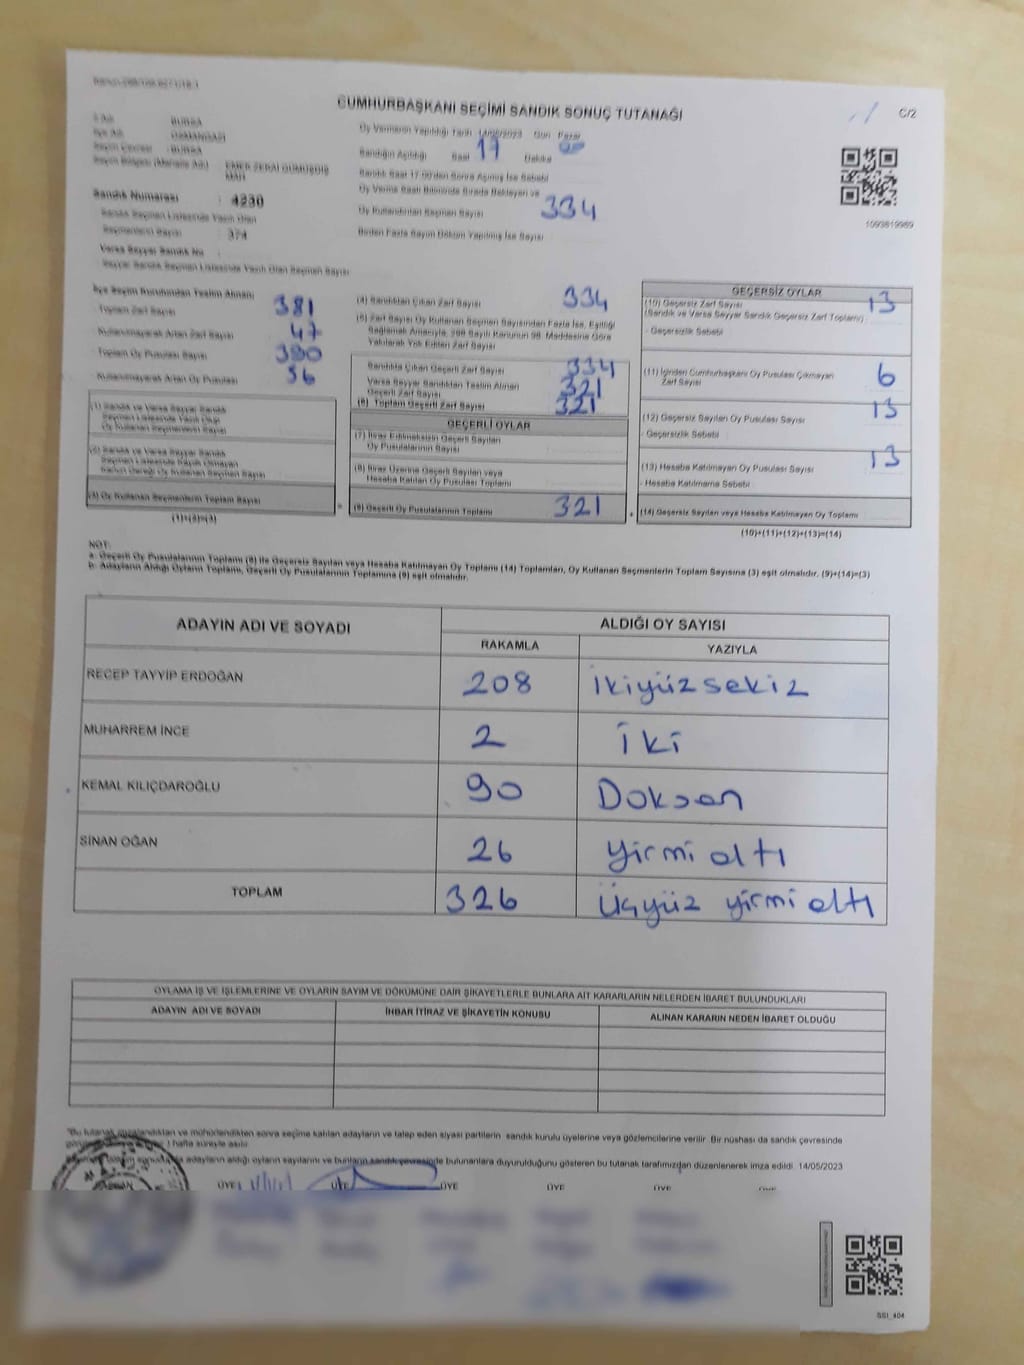 CUMHURBAŞKANI SEÇİMİ SANDIK SONUÇ TUTANAĞI
C/2
İl Adı : BURSA
İlçe Adı : OSMANGAZİ
Seçim Çevresi : BURSA
Seçim Bölgesi (Mahalle Adı) :
MAH
Oy Vermenin Yapıldığı Tarih 14/05/2023 Gün Pazar
Sandığın Açıldığı Saat 17 Dakika
Sandık Saat 17.00'den Sonra Açılmış İse Sebebi
Oy Verme Saati Bitiminde Sırada Bekleyen ve
Oy Kullandırılan Seçmen Sayısı 334
Birden Fazla Sayım Döküm Yapılmış İse Sayısı
1093819989
Sandık Numarası : 4230
Sandık Seçmen Listesinde Yazılı Olan
Seçmenlerin Sayısı : 374
Varsa Seyyar Sandık No
Seyyar Sandık Seçmen Listesinde Yazılı Olan Seçmen Sayısı
İlçe Seçim Kurulundan Teslim Alınan:
Toplam Zarf Sayısı 381
Kullanılmayarak Artan Zarf Sayısı 47
Toplam Oy Pusulası Sayısı 390
Kullanılmayarak Artan Oy Pusulası 56
(1) Sandık ve Varsa Seyyar Sandık
Seçmen Listesinde Yazılı Olup
Oy Kullanan Seçmenlerin Sayısı
(2) Sandık ve Varsa Seyyar Sandık
Seçmen Listesinde Kayıtlı Olmayan
Kanun Gereği Oy Kullanan Seçmen Sayısı
(3) Oy Kullanan Seçmenlerin Toplam Sayısı
(1)+(2)=(3)
(4) Sandıktan Çıkan Zarf Sayısı 334
(5) Zarf Sayısı Oy Kullanan Seçmen Sayısından Fazla İse, Eşitliği
Sağlamak Amacıyla, 298 Sayılı Kanunun 98. Maddesine Göre
Yakılarak Yok Edilen Zarf Sayısı
Sandıkta Çıkan Geçerli Zarf Sayısı 334
Varsa Seyyar Sandıktan Teslim Alınan
Geçerli Zarf Sayısı 321
(6) Toplam Geçerli Zarf Sayısı 321
GEÇERLİ OYLAR
(7) İtiraz Edilmeksizin Geçerli Sayılan
Oy Pusulalarının Sayısı
(8) İtiraz Üzerine Geçerli Sayılan veya
Hesaba Katılan Oy Pusulası Toplamı
(9) Geçerli Oy Pusulalarının Toplamı 321
GEÇERSİZ OYLAR
(10) Geçersiz Zarf Sayısı 13
(Sandık ve Varsa Seyyar Sandık Geçersiz Zarf Toplamı)
- Geçersizlik Sebebi
(11) İçinden Cumhurbaşkanı Oy Pusulası Çıkmayan
Zarf Sayısı 6
(12) Geçersiz Sayılan Oy Pusulası Sayısı 13
- Geçersizlik Sebebi
(13) Hesaba Katılmayan Oy Pusulası Sayısı 13
- Hesaba Katılmama Sebebi
(14) Geçersiz Sayılan veya Hesaba Katılmayan Oy Toplamı
(10)+(11)+(12)+(13)=(14)
NOT:
a- Geçerli Oy Pusulalarının Toplamı (9) ile Geçersiz Sayılan veya Hesaba Katılmayan Oy Toplamı (14) Toplamları, Oy Kullanan Seçmenlerin Toplam Sayısına (3) eşit olmalıdır. (9)+(14)=(3)
b- Adayların Aldığı Oyların Toplamı, Geçerli Oy Pusulalarının Toplamına (9) eşit olmalıdır.
ADAYIN ADI VE SOYADI ALDIĞI OY SAYISI
RAKAMLA YAZIYLA
RECEP TAYYİP ERDOĞAN 208 ikiyüzsekiz
MUHARREM İNCE 2 iki
KEMAL KILIÇDAROĞLU 90 Doksan
SİNAN OĞAN 26 yirmi altı
TOPLAM 326 Üçyüz yirmi altı
OYLAMA İŞ VE İŞLEMLERİNE VE OYLARIN SAYIM VE DÖKÜMÜNE DAİR ŞİKAYETLERLE BUNLARA AİT KARARLARIN NELERDEN İBARET BULUNDUKLARI
ADAYIN ADI VE SOYADI İHBAR İTİRAZ VE ŞİKAYETİN KONUSU ALINAN KARARIN NEDEN İBARET OLDUĞU
"Bu tutanak imzalandıktan ve mühürlendikten sonra seçime katılan adayların ve talep eden siyasi partilerin sandık kurulu üyelerine veya gözlemcilerine verilir. Bir nüshası da sandık çevresinde
1 hafta süreyle asılır.
adayların aldığı oyların sayılarını ve bunların sandık çevresinde bulunanlara duyurulduğunu gösteren bu tutanak tarafımızdan düzenlenerek imza edildi. 14/05/2023
ÜYE ÜYE ÜYE ÜYE ÜYE
SSI_404